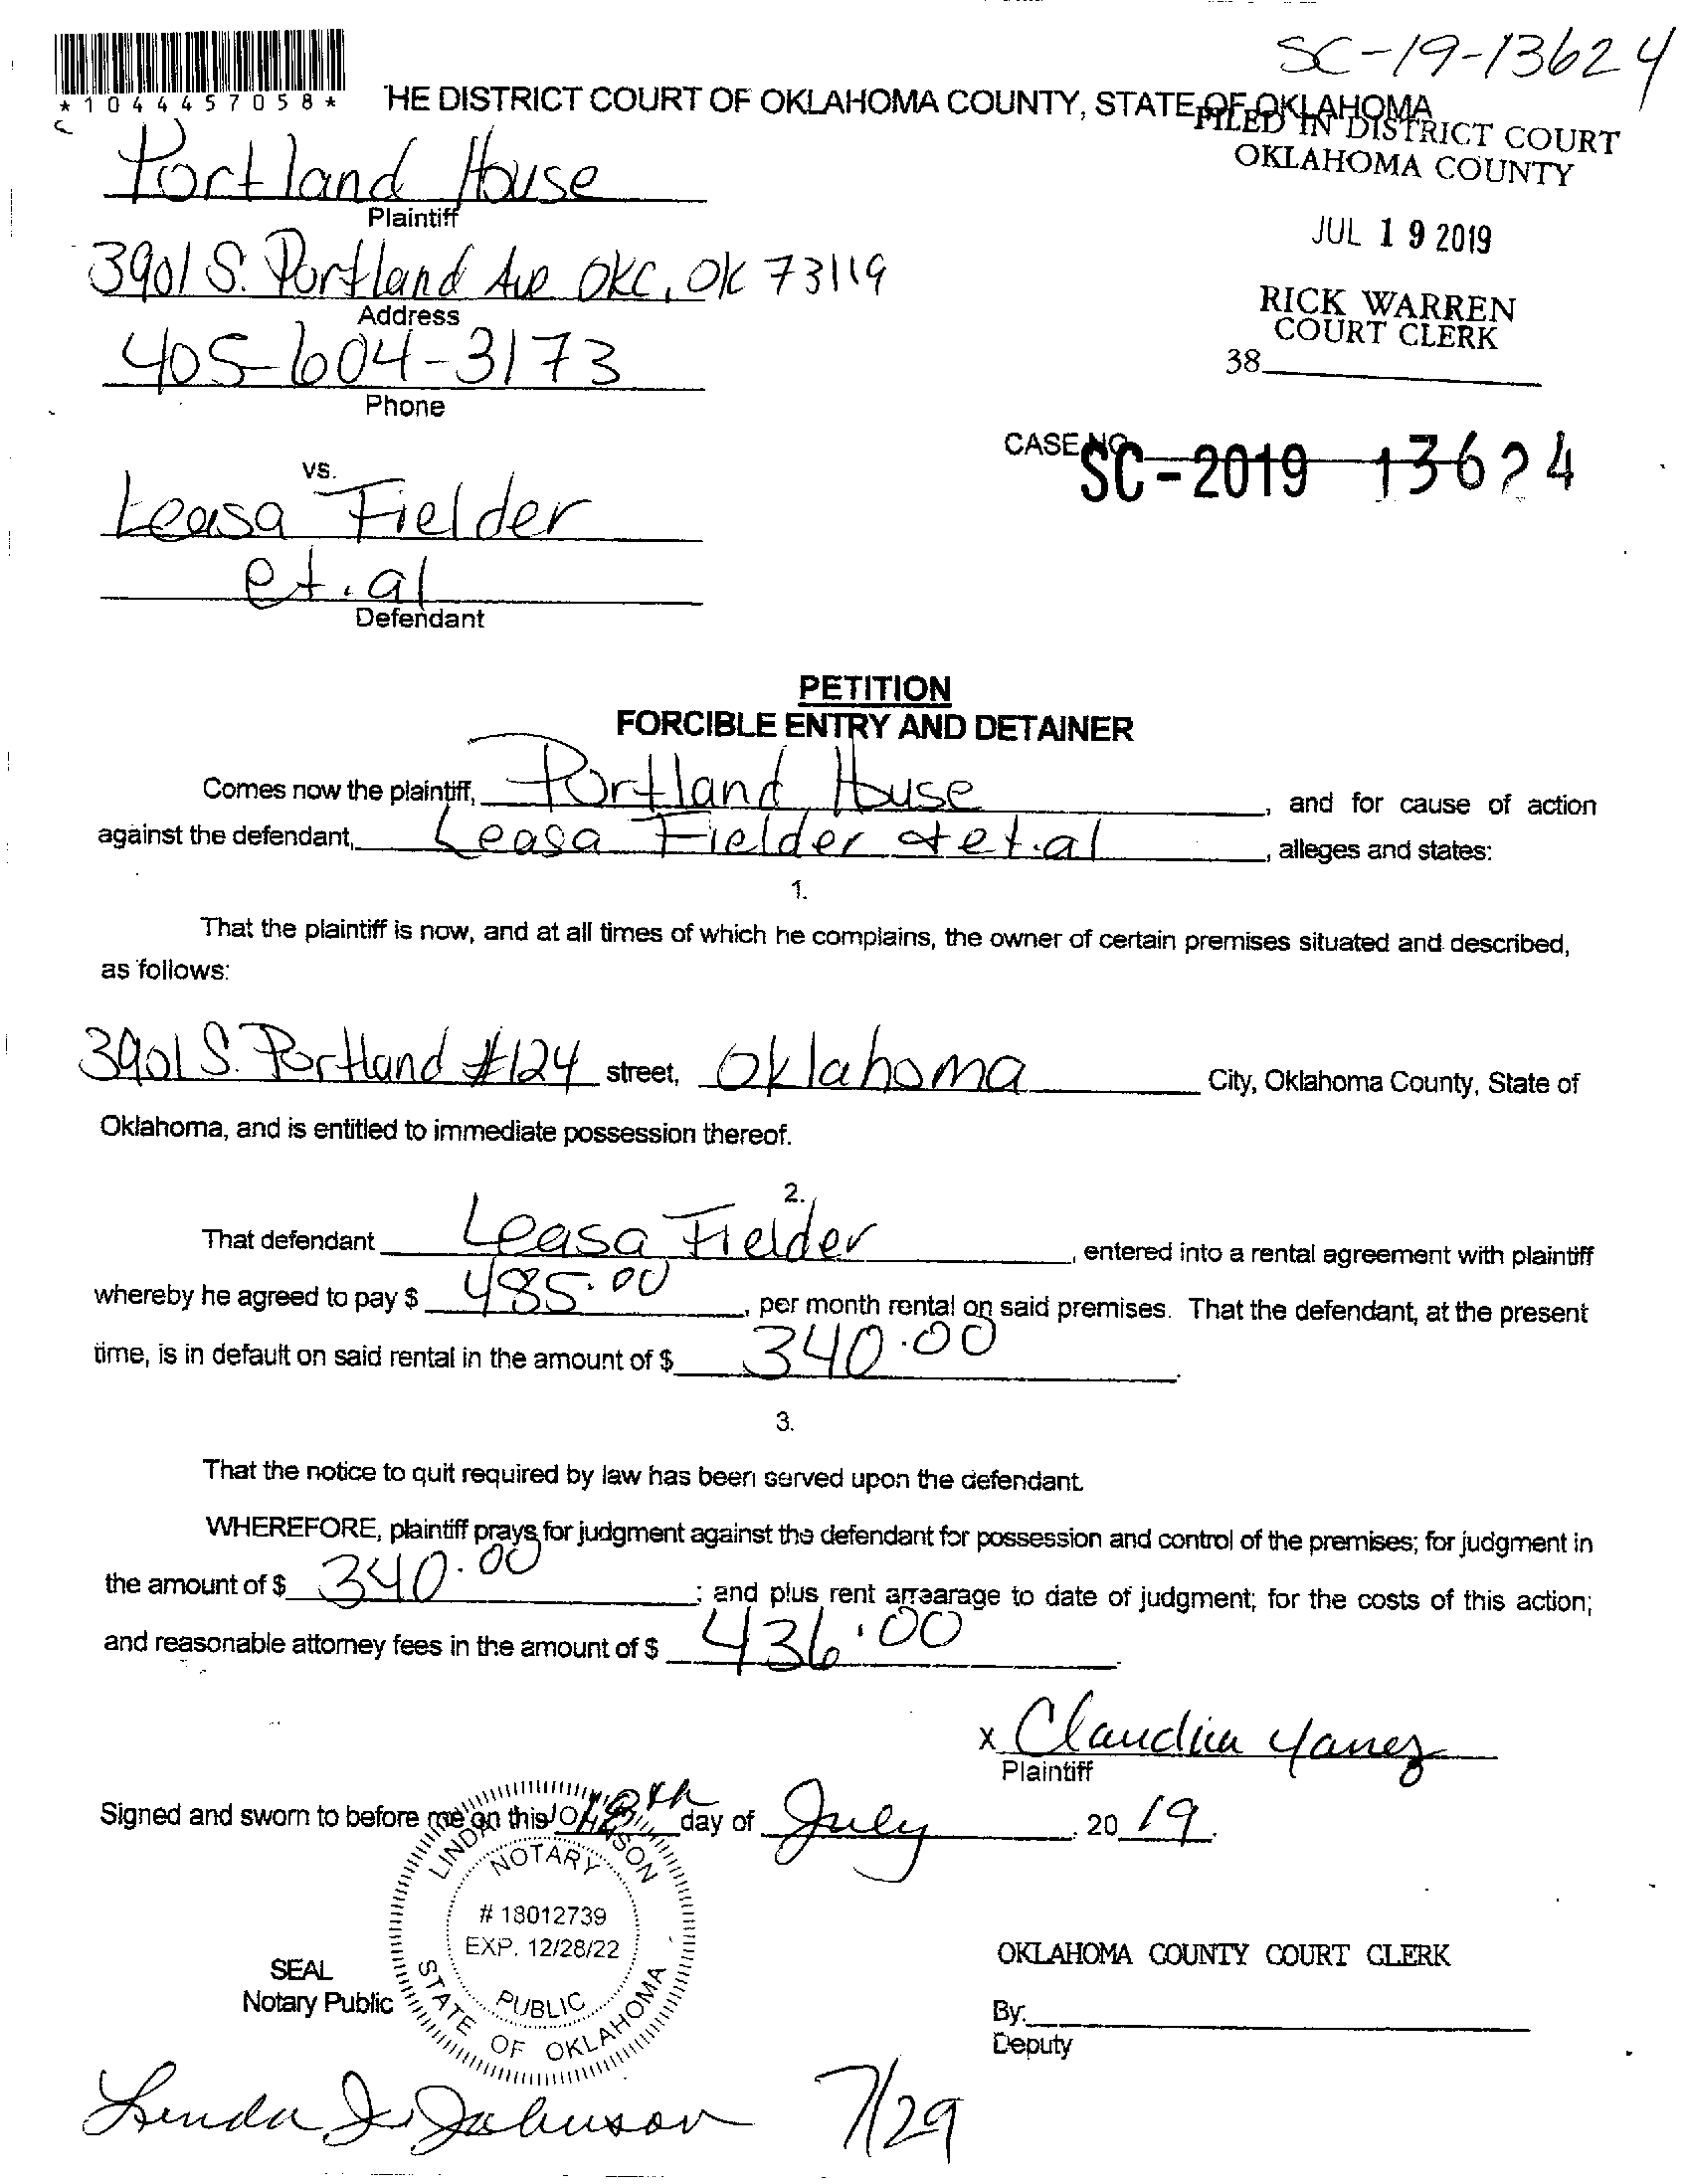 SC-19-13624
*1044457058*
HE DISTRICT COURT OF OKLAHOMA COUNTY, STATE OF OKLAHOMA
FILED IN DISTRICT COURT
OKLAHOMA COUNTY
Portland House
Plaintiff
JUL 19 2019
3901 S. Portland Ave OKC, OK 73119
Address
RICK WARREN
COURT CLERK
38
405-604-3173
Phone
CASE NO.
SC-2019 13624
vs.
Leasa Fielder
et. al
Defendant
PETITION
FORCIBLE ENTRY AND DETAINER
Comes now the plaintiff, Portland House, and for cause of action
against the defendant, Leasa Fielder & et. al, alleges and states:
1.
That the plaintiff is now, and at all times of which he complains, the owner of certain premises situated and described,
as follows:
3901 S. Portland #124 street, Oklahoma City, Oklahoma County, State of
Oklahoma, and is entitled to immediate possession thereof.
2.
That defendant Leasa Fielder, entered into a rental agreement with plaintiff
whereby he agreed to pay $ 485.00, per month rental on said premises. That the defendant, at the present
time, is in default on said rental in the amount of $ 340.00.
3.
That the notice to quit required by law has been served upon the defendant.
WHEREFORE, plaintiff prays for judgment against the defendant for possession and control of the premises; for judgment in
the amount of $ 340.00; and plus rent arrearage to date of judgment; for the costs of this action;
and reasonable attorney fees in the amount of $ 436.00.
x Claudia Yanez
Plaintiff
Signed and sworn to before me on this 18th day of July, 20 19.
LINDA JOHNSON
NOTARY
# 18012739
EXP. 12/28/22
PUBLIC
STATE OF OKLAHOMA
SEAL
Notary Public
OKLAHOMA COUNTY COURT CLERK
By:
Deputy
Linda J. Johnson
7/29